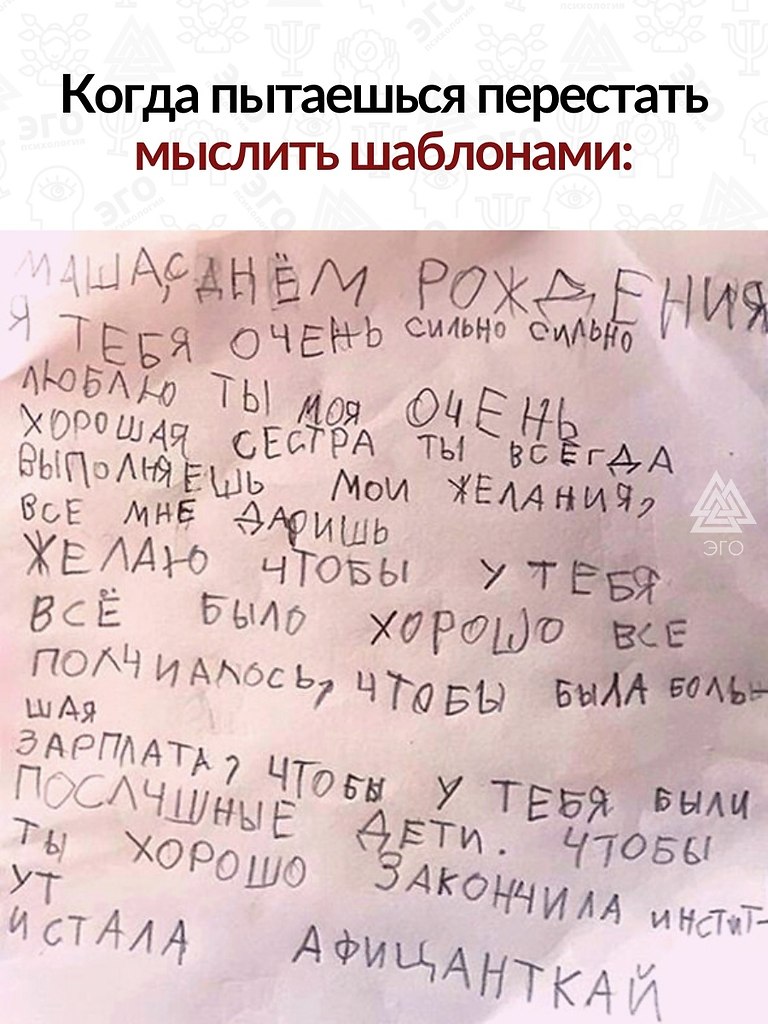 Когда пытаешься перестать
мыслить шаблонами:
МАША, С ДНЁМ РОЖДЕНИЯ
Я ТЕБЯ ОЧЕНЬ СИЛЬНО СИЛЬНО
ЛЮБЛЮ ТЫ МОЯ ОЧЕНЬ
ХОРОШАЯ СЕСТРА ТЫ ВСЕГДА
ВЫПОЛНЯЕШЬ МОИ ЖЕЛАНИЯ,
ВСЕ МНЕ ДАРИШЬ
ЖЕЛАЮ ЧТОБЫ У ТЕБЯ
ВСЁ БЫЛО ХОРОШО ВСЕ
ПОЛЧИАЛОСЬ, ЧТОБЫ БЫЛА БОЛЬ-
ШАЯ
ЗАРПЛАТА, ЧТОБЫ У ТЕБЯ БЫЛИ
ПОСЛЧШНЫЕ ДЕТИ. ЧТОБЫ
ТЫ ХОРОШО ЗАКОНЧИЛА ИНСТИТ-
УТ
И СТАЛА АФИЦАНТКАЙ
ЭГО